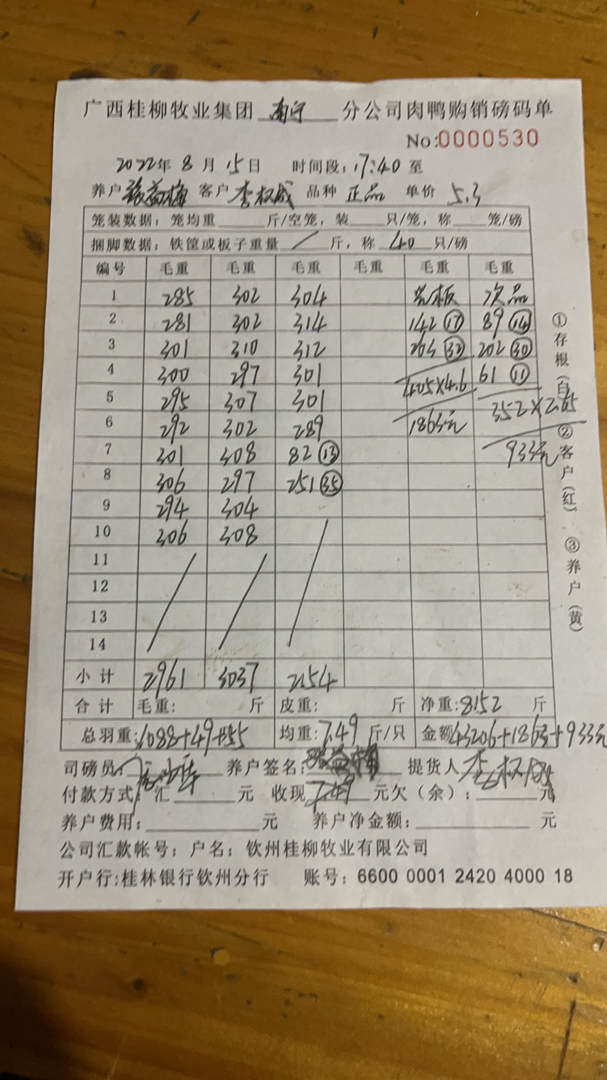 广西桂柳牧业集团 南宁 分公司肉鸭购销磅码单
No:0000530
2022年8月15日 时间段:17:40至
养户 客户 李权成 品种 正品 单价 5.3
笼装数据:笼均重 斤/空笼,装 只/笼,称 笼/磅
捆脚数据:铁筐或板子重量 / 斤,称 40 只/磅
编号 毛重 毛重 毛重 毛重 毛重 毛重
1 285 302 304 次品
2 281 302 314 142 (17) 89 (14)
3 301 310 312 263 (32) 202 (30)
4 300 297 301 405×4.6 61 (11)
5 295 307 301 352×2.65
6 292 302 289 1863元
7 301 308 82 (13) 933元
8 306 297 251 (35)
9 294 304
10 306 308
11
12
13
14
小计 2961 3037 2154
合计 毛重: 斤 皮重: 斤 净重:8152 斤
总羽重:1088+49+55 均重:7.49 斤/只 金额43206+1863+933元
司磅员: 养户签名: 提货人 李权成
付款方式:汇 元 收现 7.49 元欠(余): 元
养户费用: 元 养户净金额: 元
公司汇款帐号:户名:钦州桂柳牧业有限公司
开户行:桂林银行钦州分行 账号:6600 0001 2420 4000 18
①存根(白)
②客户(红)
③养户(黄)